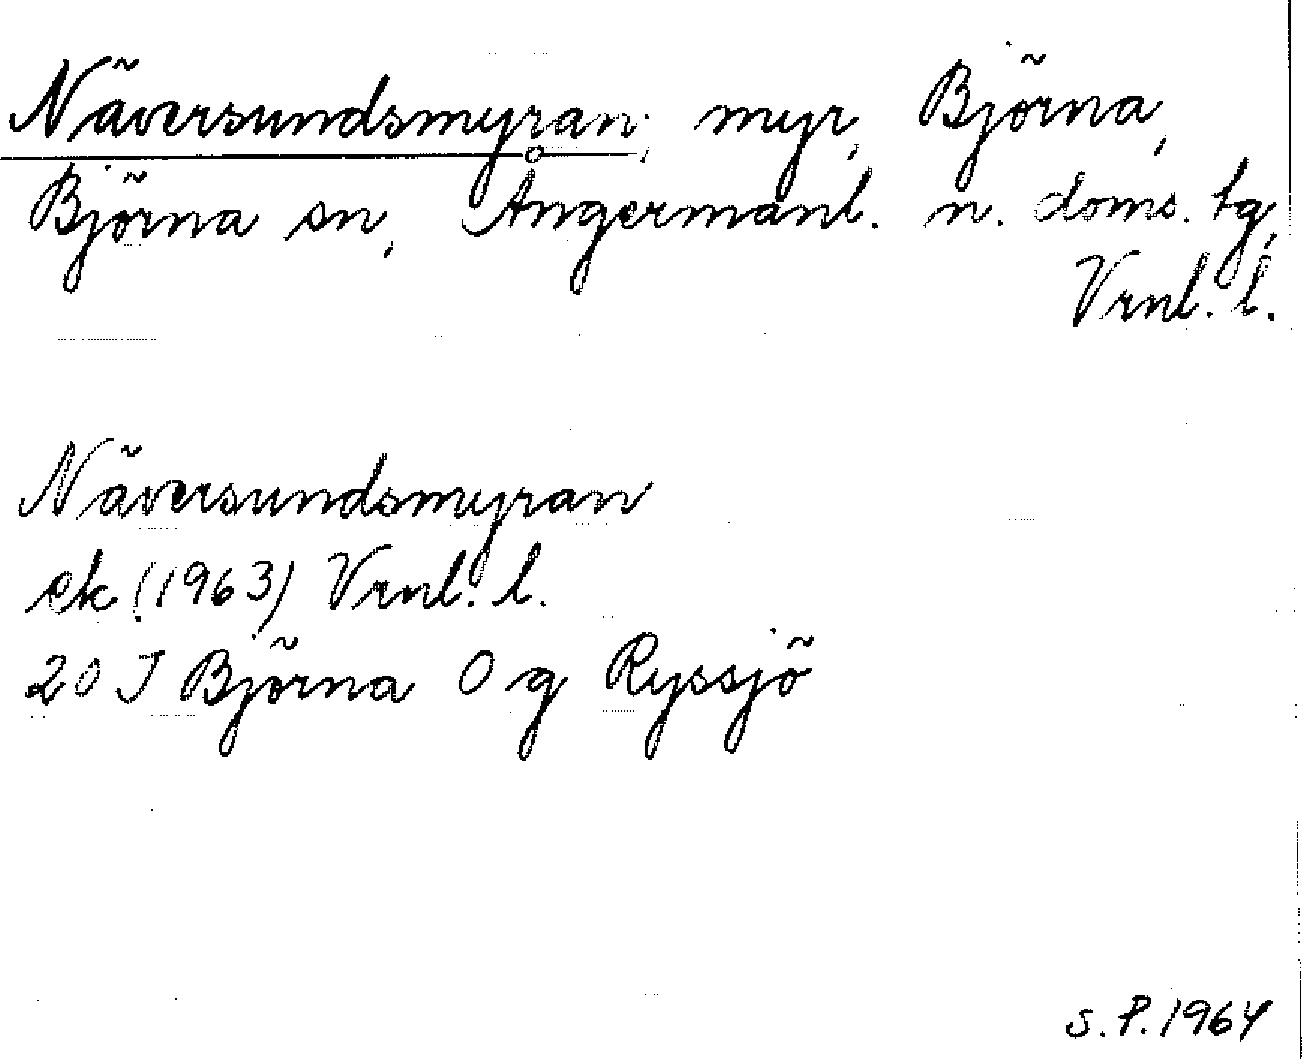 Näversundsmyran, myr, Björna,
Björna sn, Ångermanl. n. doms. tg,
Vrnl. l.
Näversundsmyran
ek (1963) Vrnl. l.
20 J Björna O g Ryssjö
S. P. 1964